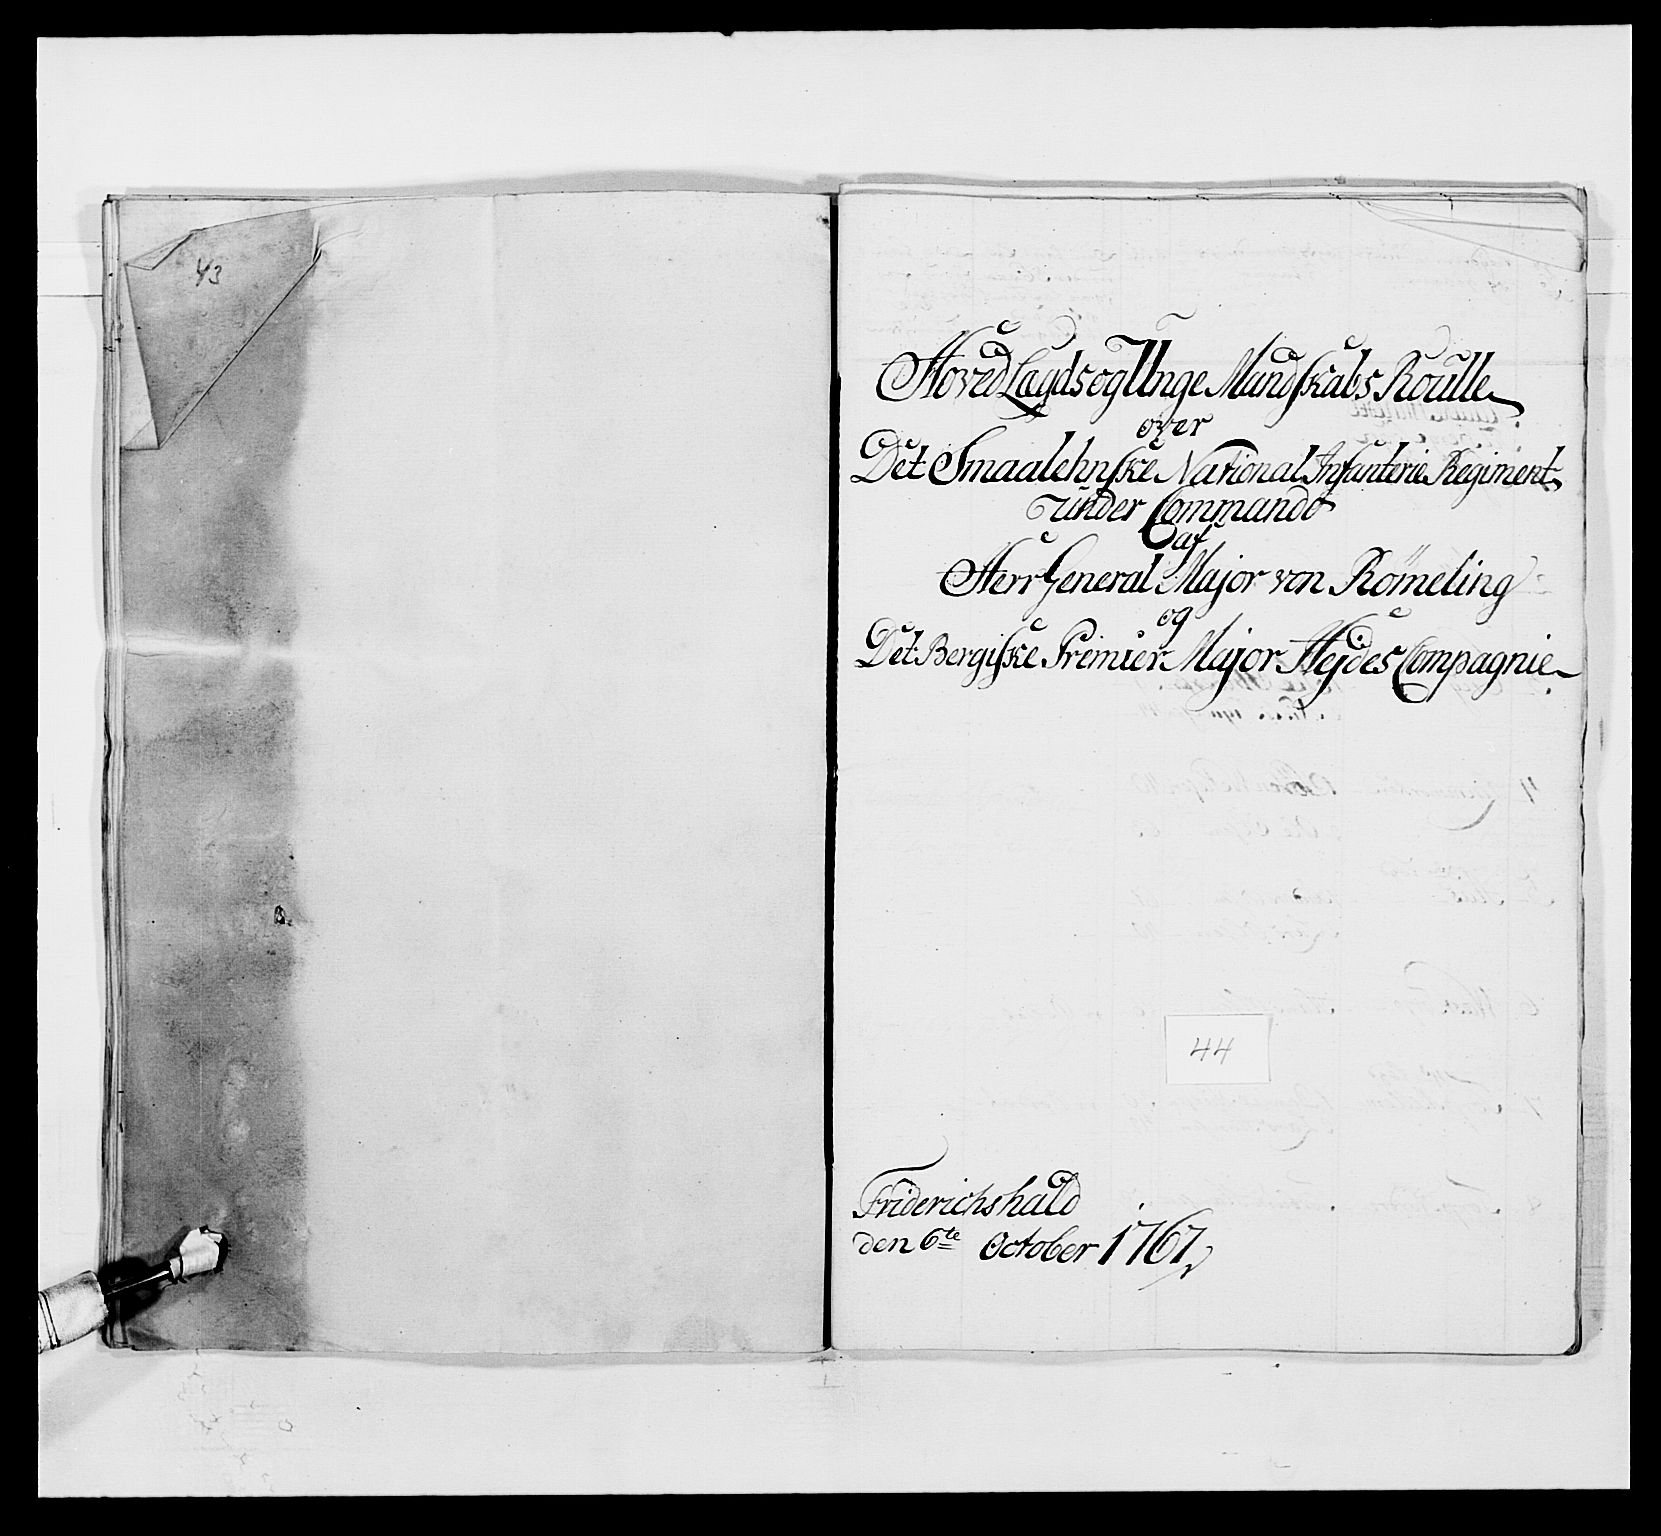 43
Hoved Lægds og Unge Mandskabs Roulle
over
Det Smaalehnske National Infanterie Regiment
under Commando
af
Herr General Major von Römeling
og
Det Bergiske Premier Major Hejdes Compagnie
44
Friderichshald
den 6te October 1767